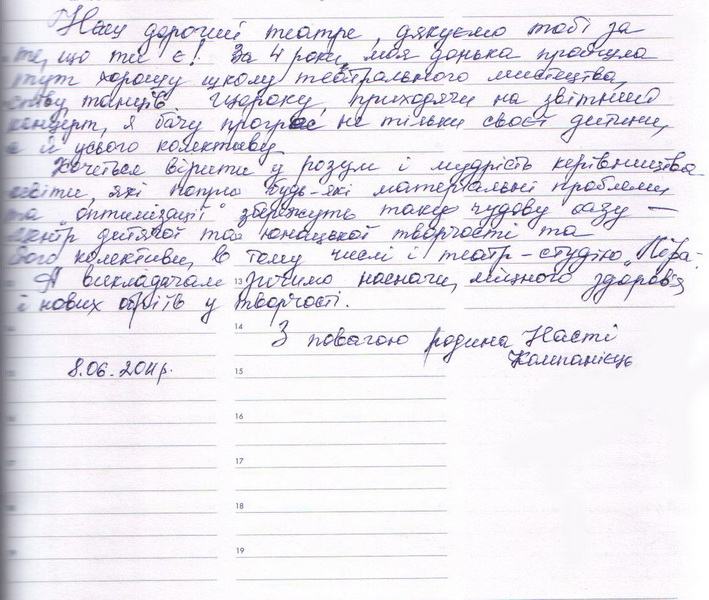 Наш дорогий театре, дякуємо тобі за
те, що ти є! За 4 роки, моя донька пройшла
тут хорошу школу театрального мистецтва,
співу, танців. Щороку, приходячи на звітний
концерт, я бачу прогрес не тільки своєї дитини,
а й усього колективу.
Хочеться вірити у розум і мудрість керівництва
освіти, які попри будь-які матеріальні проблеми
та "оптимізації" збережуть таку чудову базу —
центр дитячої та юнацької творчості та
його колективи, в тому числі і театр-студію
А викладачам зичимо наснаги, міцного здоров'я
і нових строїв у творчості.
З повагою родина Насті
Компанієць
8.06.2011р.
13
14
15
16
17
18
19